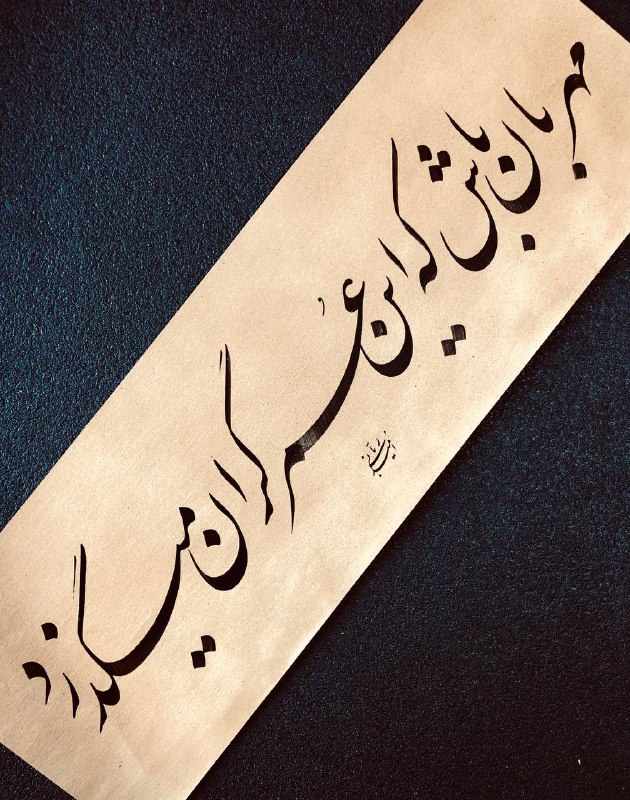 مهربان باش که این عُمر گران میگذرد